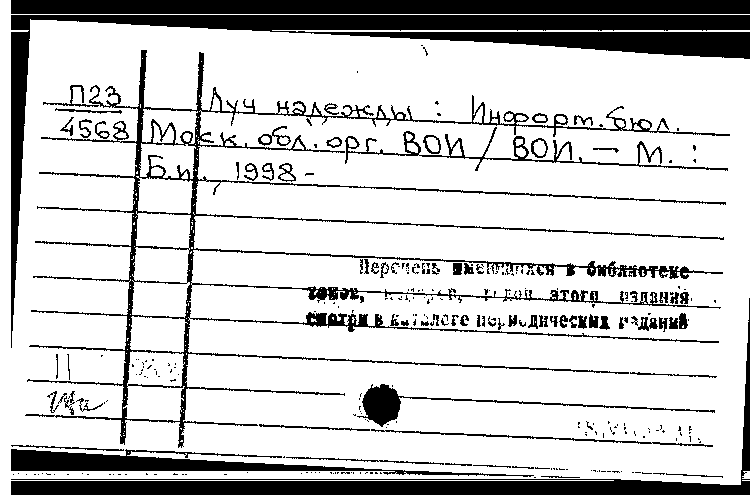 П23 Луч надежды : Информ. бюл.
4568 Моск. обл. орг. ВОИ / ВОИ. — М. :
Б.и., 1998 -
Перечень имеющихся в библиотеке
томов, номеров, годов этого издания
смотри в каталоге периодических изданий
П